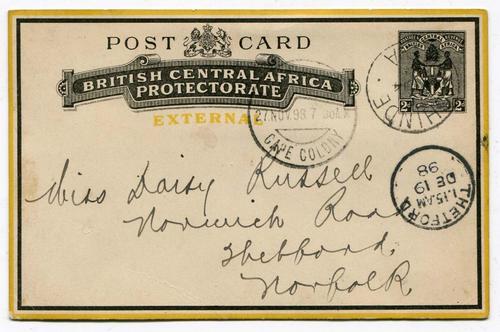 POST CARD
BRITISH CENTRAL AFRICA
PROTECTORATE
EXTERNAL
BRITISH CENTRAL AFRICA
2d 2d
CHINDE
27 NOV. 98 7
CAPE COLONY
THETFORD
1.15 AM
DE 19
98
Miss Daisy Russell
Norwich Road
Thetford,
Norfolk